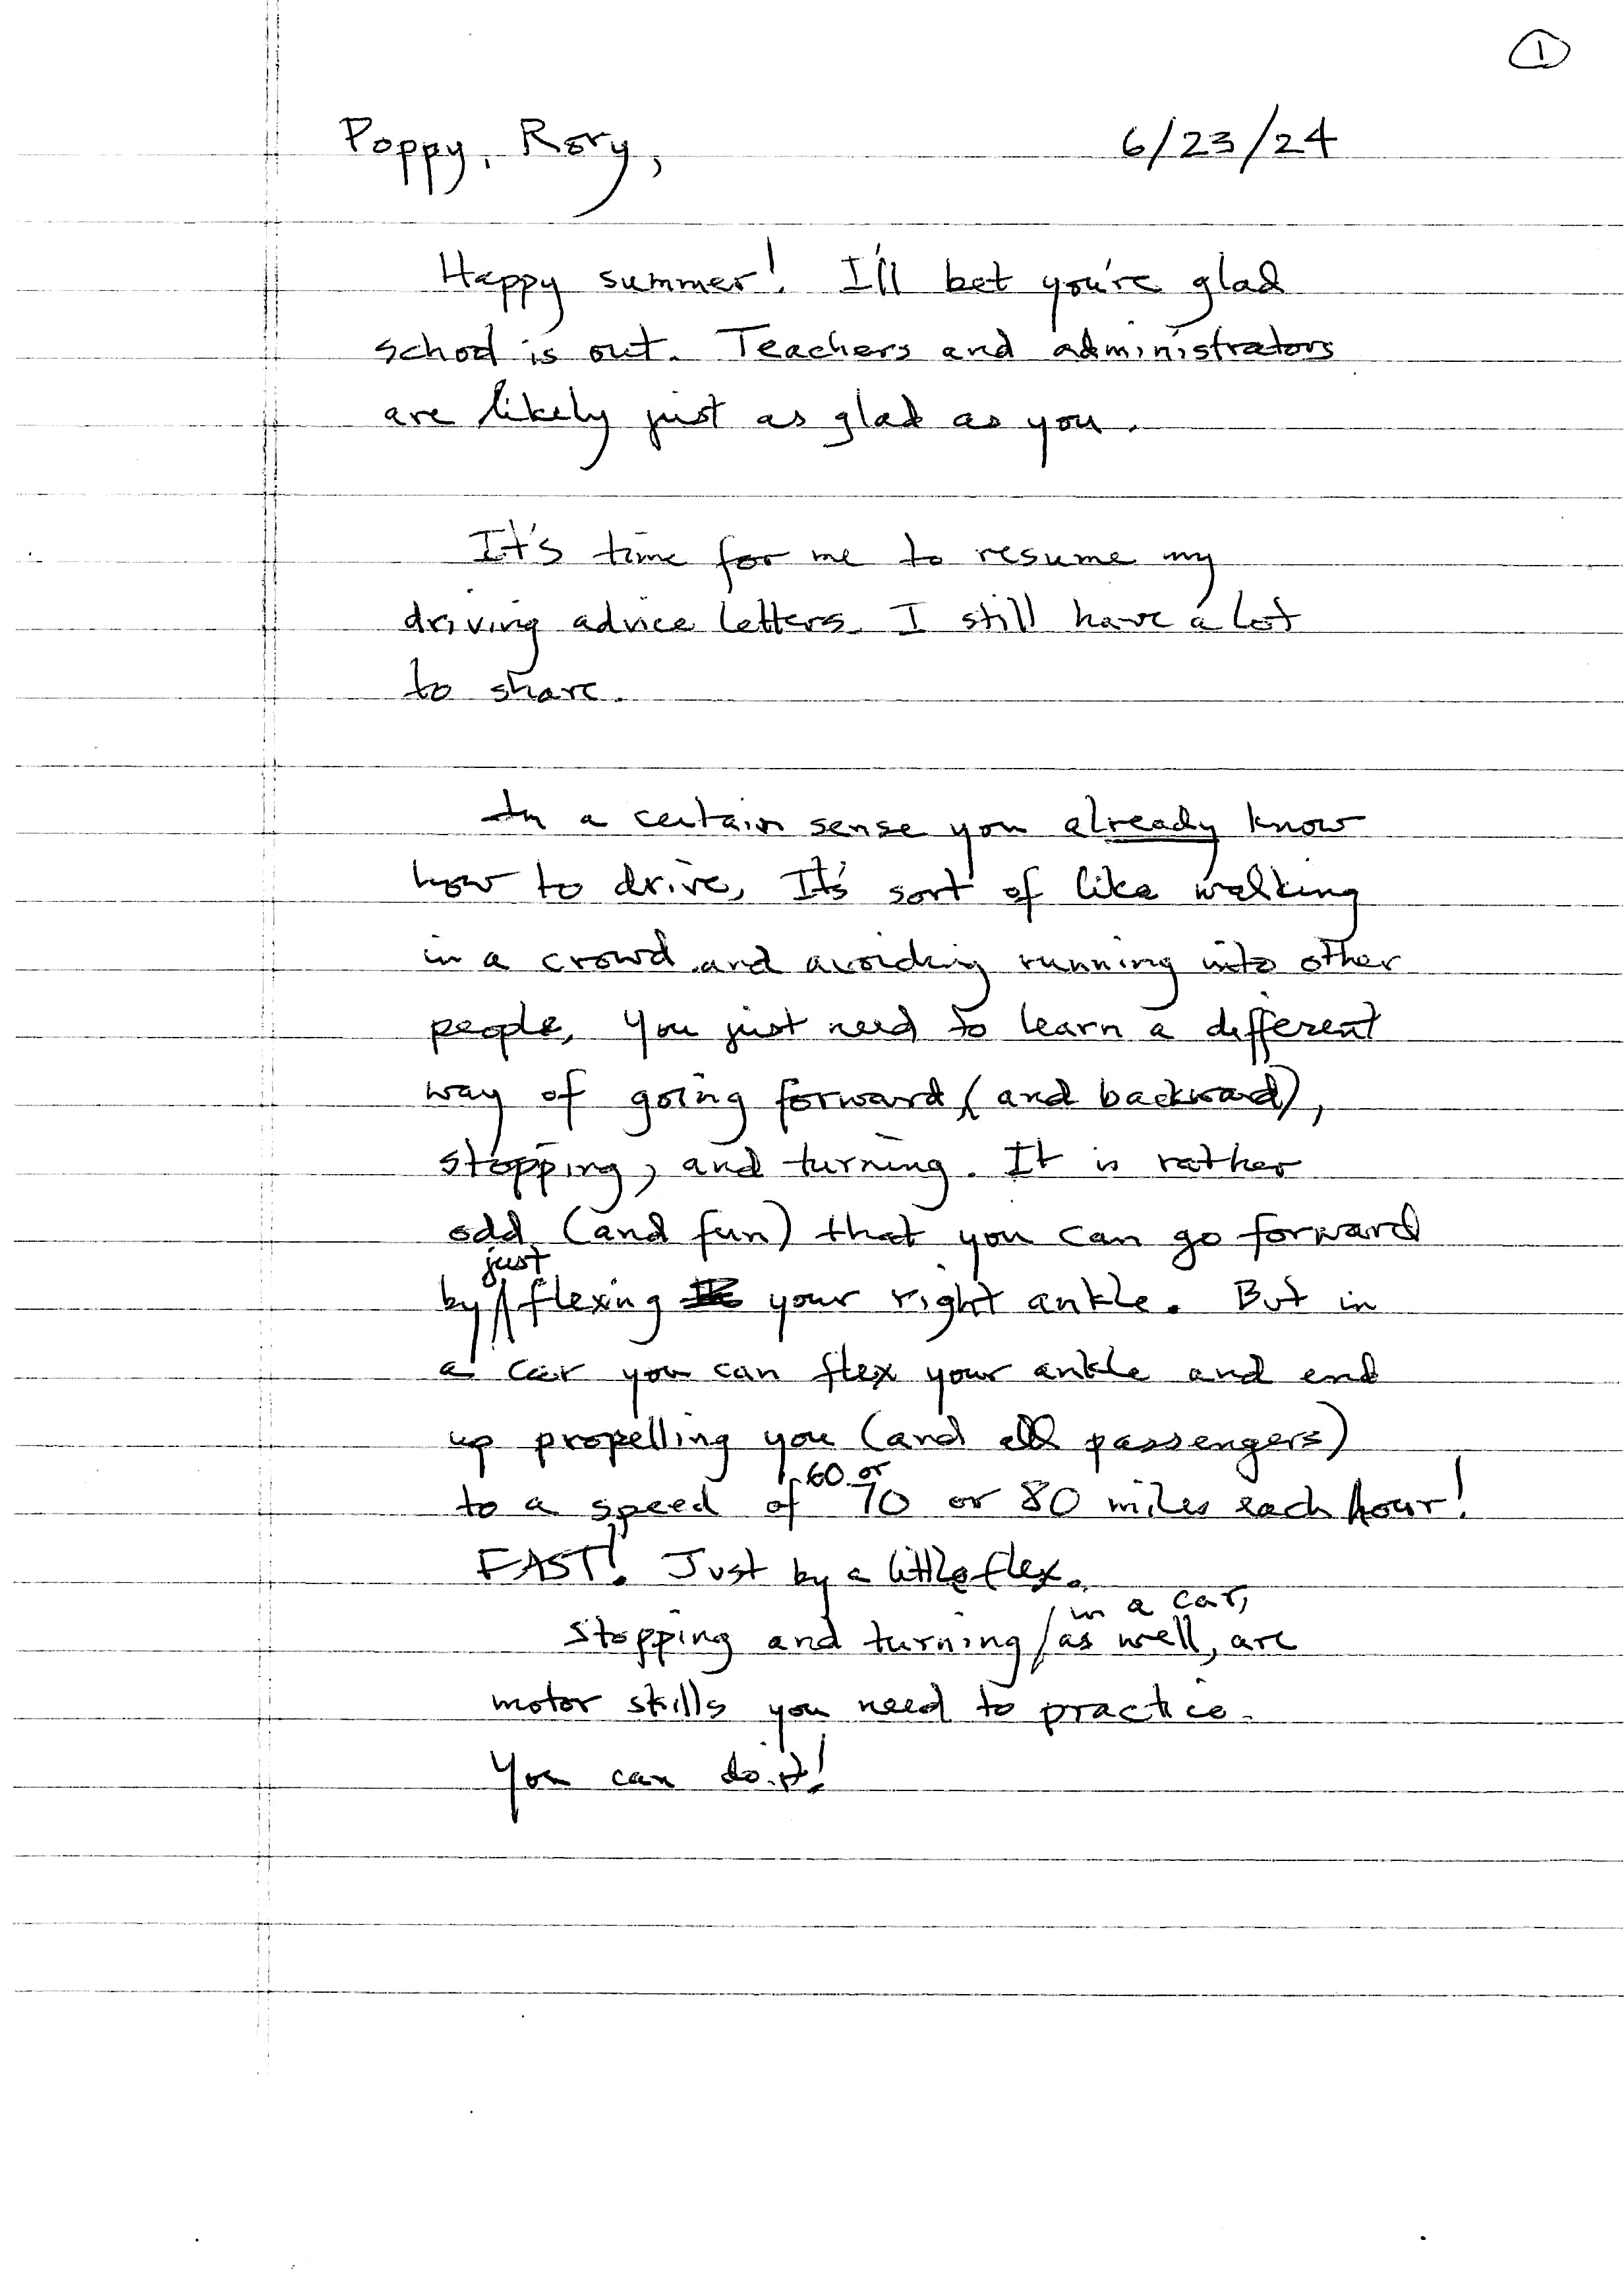 1
Poppy, Rory, 6/23/24
Happy summer! I'll bet you're glad
school is out. Teachers and administrators
are likely just as glad as you.
It's time for me to resume my
driving advice letters. I still have a lot
to share.
In a certain sense you already know
how to drive, It's sort of like walking
in a crowd and avoiding running into other
people, You just need to learn a different
way of going forward (and backward),
stopping, and turning. It is rather
odd (and fun) that you can go forward
by just flexing your right ankle. But in
a car you can flex your ankle and end
up propelling you (and all passengers)
to a speed of 60 or 70 or 80 miles each hour!
FAST! Just by a little flex.
Stopping and turning in a car, as well, are
motor skills you need to practice.
You can do it!